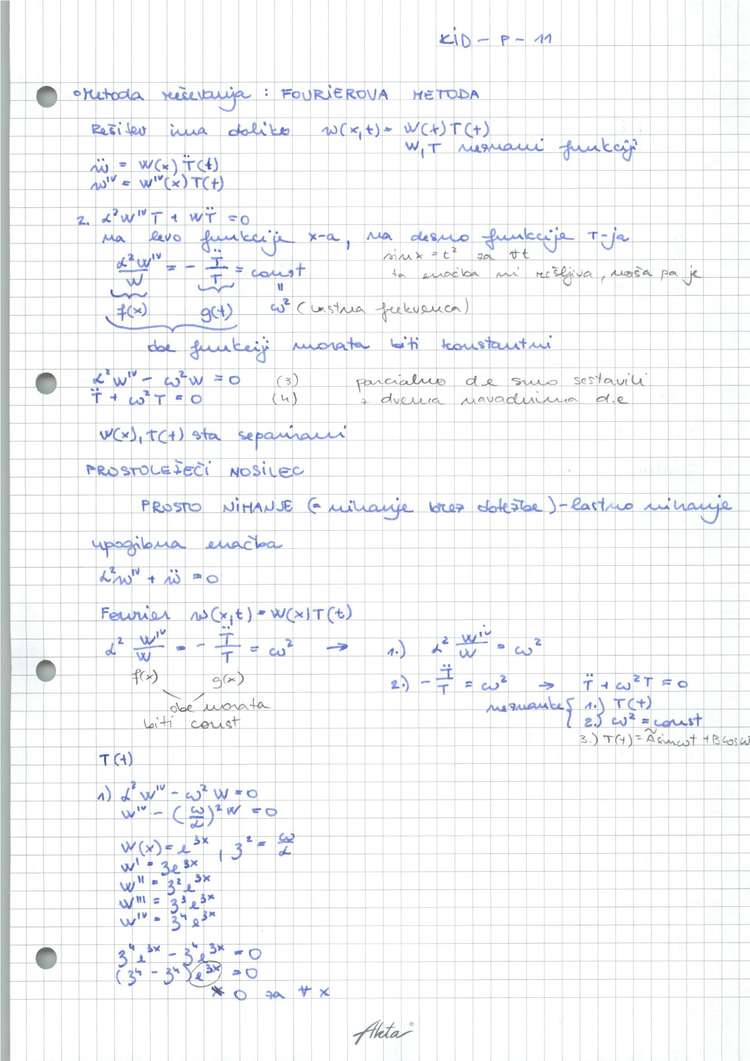 KID - P - 11
• Metoda reševanja : FOURIEROVA METODA
Rešitev ima obliko w(x,t) = W(t)T(t)
W, T neznani funkciji
ẅ = W(x) T̈(t)
wᴵⱽ = Wᴵⱽ(x) T(t)
2. α²Wᴵⱽ T + W T̈ = 0
na levo funkcije x-a, na desno funkcije T-ja
α²Wᴵⱽ/W = - T̈/T = const
sin x = t² za ∀t
ta enačba ni rešljiva, naša pa je
f(x) g(t) ω² (lastna frekvenca)
obe funkciji morata biti konstantni
α²Wᴵⱽ - ω²W = 0 (3) parcialno d.e smo sestavili
T̈ + ω²T = 0 (4) z dvema navadnima d.e
W(x), T(t) sta separirani
PROSTOLEŽEČI NOSILEC
PROSTO NIHANJE (= nihanje brez obtežbe) - lastno nihanje
upogibna enačba
α²wᴵⱽ + ẅ = 0
Fourier w(x,t) = W(x)T(t)
α² Wᴵⱽ/W = - T̈/T = ω² → 1.) α² Wᴵⱽ/W = ω²
f(x) g(x)
obe morata
biti const
2.) - T̈/T = ω² → T̈ + ω²T = 0
neznanke { 1.) T(t)
2.) ω² = const
3.) T(t) = Ã sin ωt + B cos ω
T(t)
1) α²Wᴵⱽ - ω²W = 0
Wᴵⱽ - (ω/α)² W = 0
W(x) = e^3x , 3² = ω/α
W' = 3e^3x
W'' = 3²e^3x
W''' = 3³e^3x
Wᴵⱽ = 3⁴e^3x
3⁴e^3x - 3⁴e^3x = 0
(3⁴ - 3⁴) e^3x = 0
≠ 0 za ∀ x
Akta